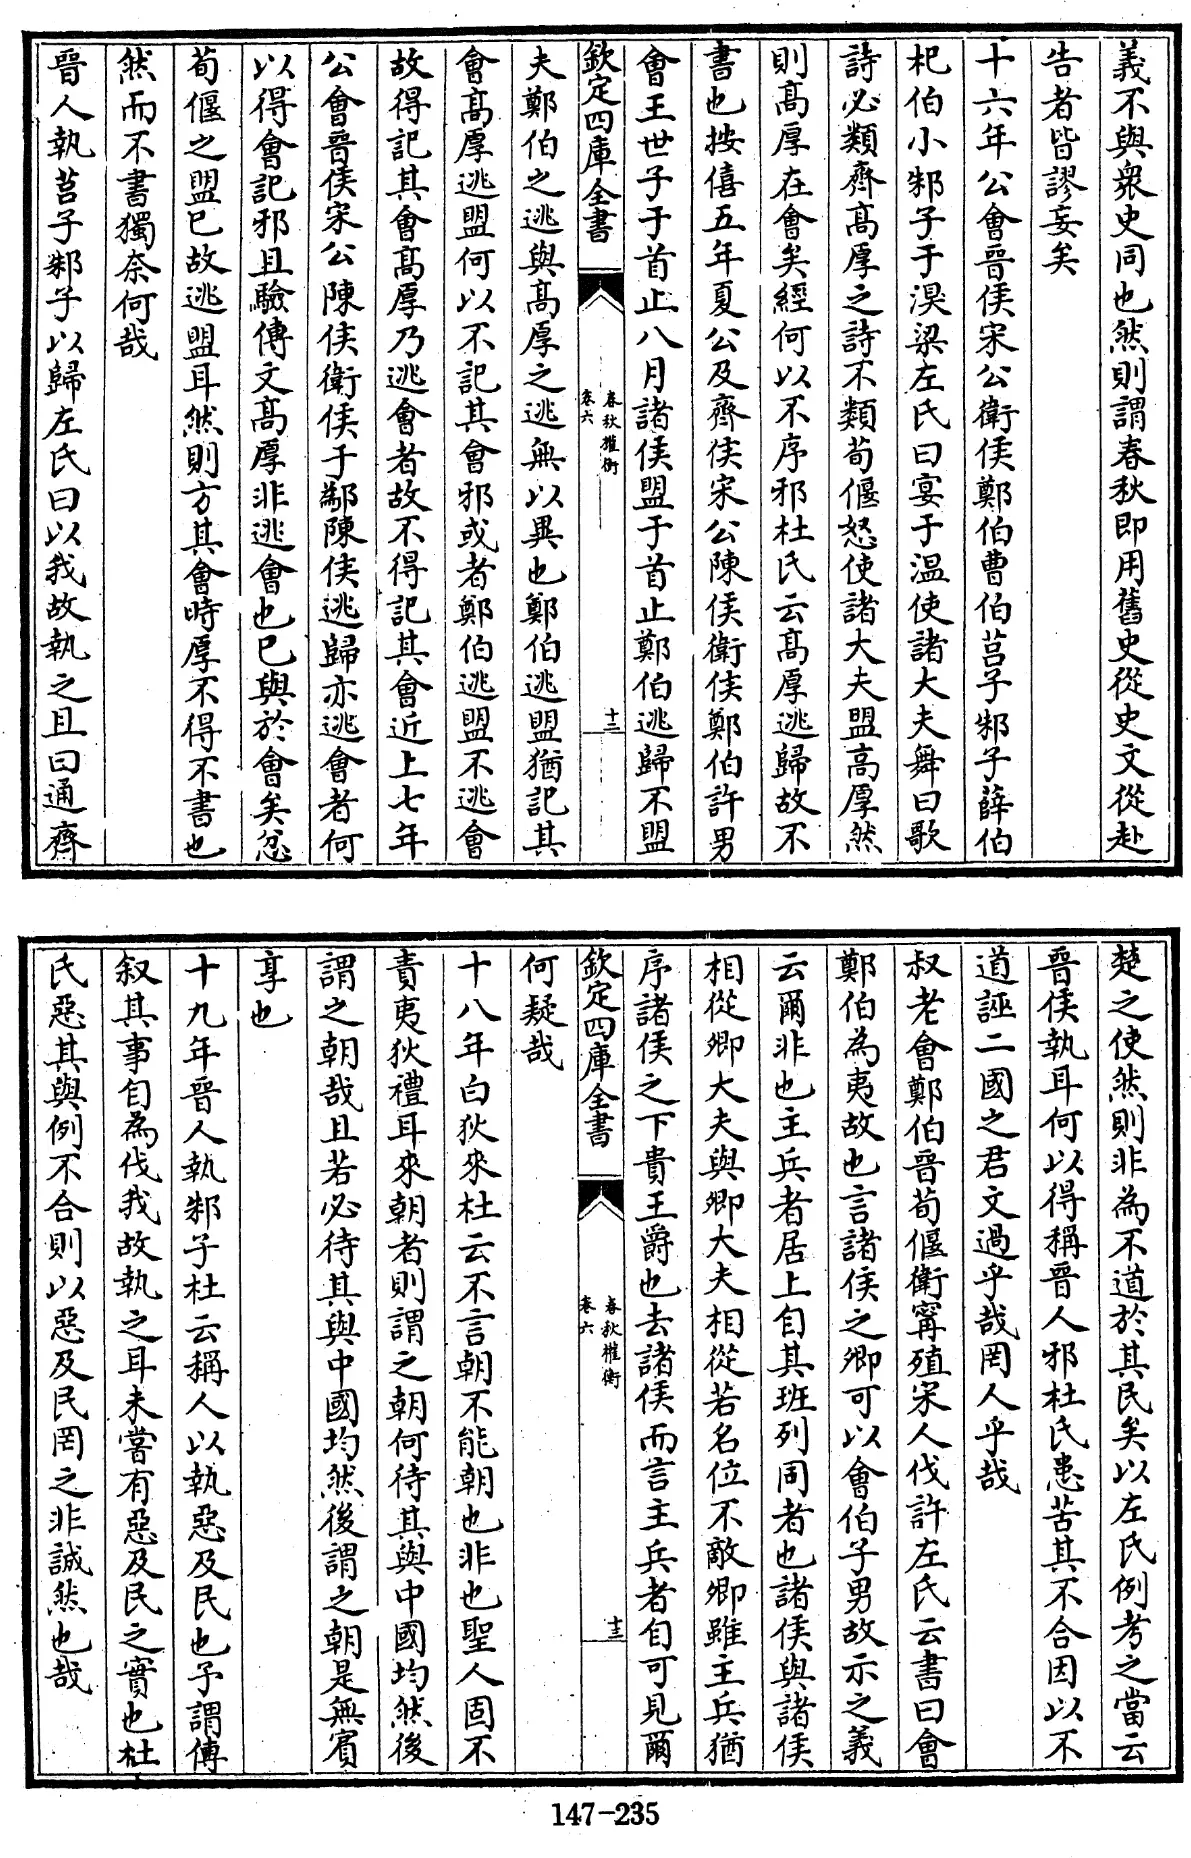 義不與衆史同也然則謂春秋即用舊史從史文從赴
告者皆謬妄矣
十六年公會晉侯宋公衛侯鄭伯曹伯莒子邾子薛伯
杞伯小邾子于溴梁左氏曰宴于溫使諸大夫舞曰歌
詩必類齊髙厚之詩不類荀偃怒使諸大夫盟高厚然
則髙厚在會矣經何以不序邪杜氏云髙厚逃歸故不
書也按僖五年夏公及齊侯宋公陳侯衛侯鄭伯許男
會王世子于首止八月諸侯盟于首止鄭伯逃歸不盟
欽定四庫全書
春秋權衡
卷六
十二
夫鄭伯之逃與髙厚之逃無以異也鄭伯逃盟猶記其
會髙厚逃盟何以不記其會邪或者鄭伯逃盟不逃會
故得記其會髙厚乃逃會者故不得記其會近上七年
公會晉侯宋公陳侯衛侯于鄬陳侯逃歸亦逃會者何
以得會記邪且驗傳文髙厚非逃會也已與於會矣忿
荀偃之盟已故逃盟耳然則方其會時厚不得不書也
然而不書獨奈何哉
晉人執莒子邾子以歸左氏曰以我故執之且曰通齊
楚之使然則非為不道於其民矣以左氏例考之當云
晉侯執耳何以得稱晉人邪杜氏患苦其不合因以不
道誣二國之君文過乎哉罔人乎哉
叔老會鄭伯晉荀偃衛寗殖宋人伐許左氏云書曰會
鄭伯為夷故也言諸侯之卿可以會伯子男故示之義
云爾非也主兵者居上自其班列同者也諸侯與諸侯
相從卿大夫與卿大夫相從若名位不敵卿雖主兵猶
序諸侯之下貴王爵也去諸侯而言主兵者自可見爾
欽定四庫全書
春秋權衡
卷六
十三
何疑哉
十八年白狄來杜云不言朝不能朝也非也聖人固不
責夷狄禮耳來朝者則謂之朝何待其與中國均然後
謂之朝哉且若必待其與中國均然後謂之朝是無賓
享也
十九年晉人執邾子杜云稱人以執惡及民也予謂傳
叙其事自為伐我故執之耳未嘗有惡及民之實也杜
氏惡其與例不合則以惡及民罔之非誠然也哉
147-235